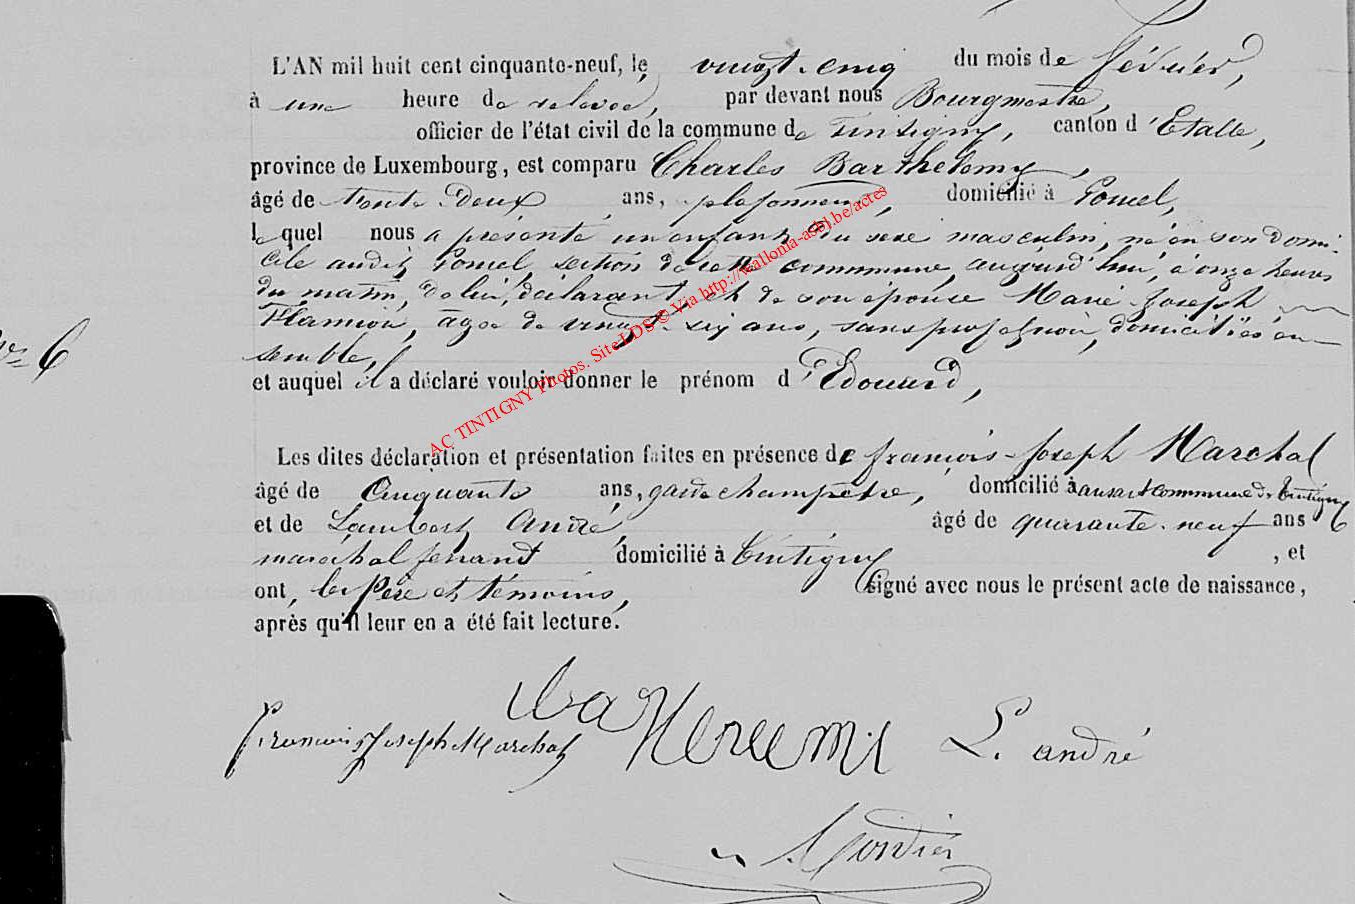 L'AN mil huit cent cinquante-neuf, le vingt-cinq du mois de février,
à une heure de relevée, par devant nous Bourgmestre,
officier de l'état civil de la commune de Tintigny, canton d'Etalle,
province de Luxembourg, est comparu Charles Barthelemy,
âgé de trente deux ans, plafonneur, domicilié à Poncel,
le quel nous a présenté un enfant du sexe masculin, né en son domi-
cile audit Poncel, section de cette commune, aujourd'hui, à onze heures
du matin, de lui, déclarant, et de son épouse Marie-Joseph
Flamion, âgée de vingt six ans, sans profession, domiciliés en-
semble,
Nº 6
et auquel il a déclaré vouloir donner le prénom d'Edouard,
Les dites déclaration et présentation faites en présence de françois-Joseph Marchal
âgé de Cinquante ans, garde champêtre, domicilié à ansart commune de Tintigny
et de Lambert André âgé de quarante-neuf ans
maréchal ferrant domicilié à Tintigny, et
ont, les Père et témoins, signé avec nous le présent acte de naissance,
après qu'il leur en a été fait lecture.
François Joseph Marchal
L. andré
AC TINTIGNY Photos. Site LDS © Via http://wallonia-asbl.be/actes